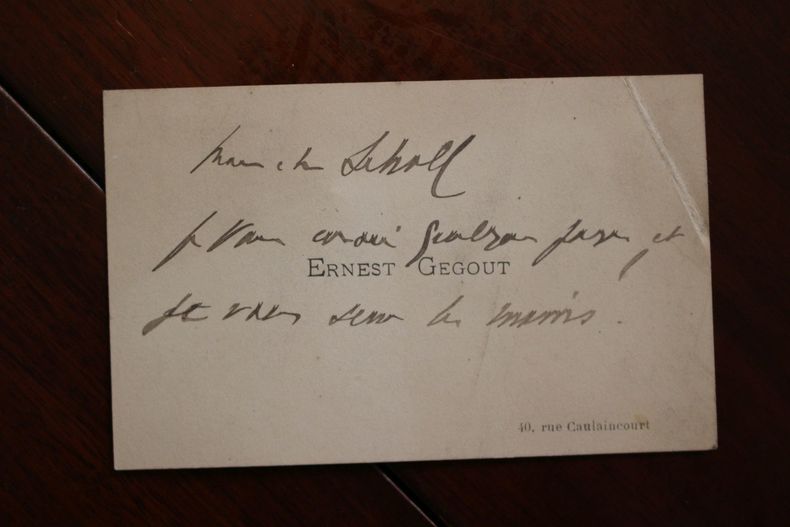 Mon cher Scholl
Je vous envoie quelques pages et
ERNEST GEGOUT
je vous serre les mains.
40, rue Caulaincourt